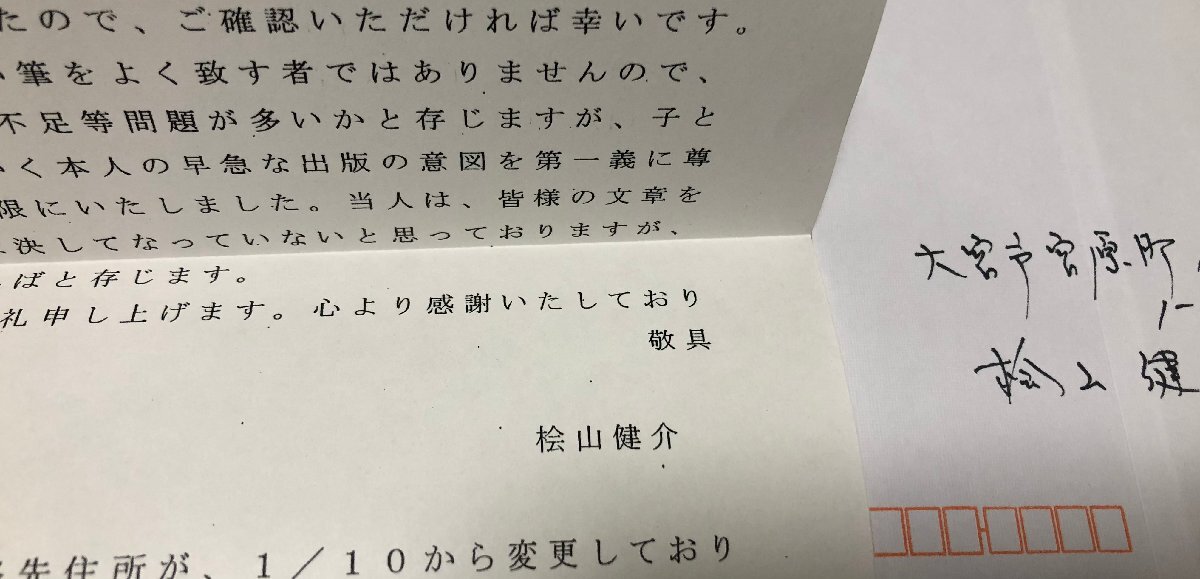 たので、ご確認いただければ幸いです。
筆をよく致す者ではありませんので、
不足等問題が多いかと存じますが、子と
く本人の早急な出版の意図を第一義に尊
限にいたしました。当人は、皆様の文章を
決してなっていないと思っておりますが、
ばと存じます。
礼申し上げます。心より感謝いたしており
敬具
桧山健介
先住所が、1/10から変更しており
大宮市宮原町
桧山健